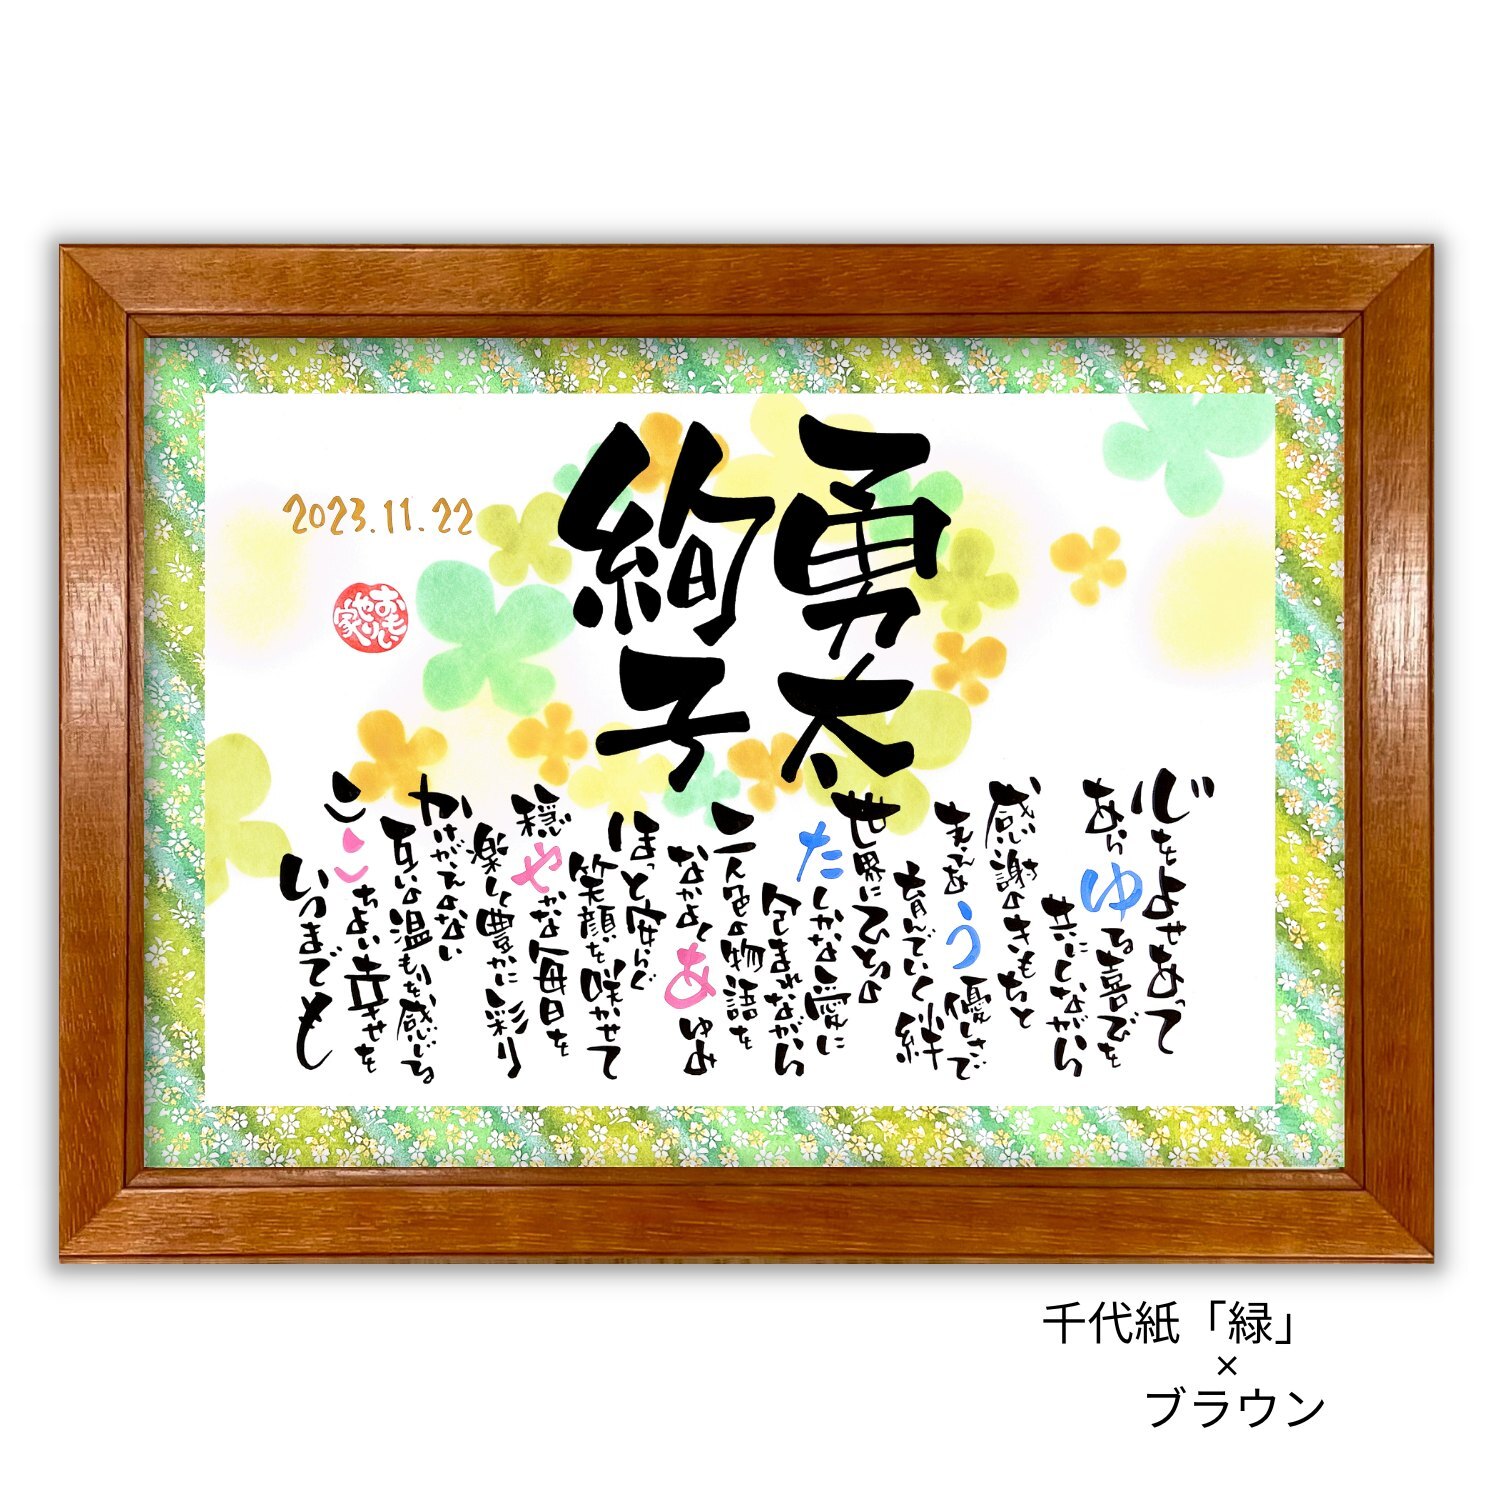 勇太
絢子
2023.11.22
おもいやり家
心をよせあって
あらゆる喜びを
共にしながら
感謝のきもちと
う優しさで
育んでいく絆
世界にひとつの
たしかな愛に
包まれながら
二人色の物語を
なかよくあゆみ
ほっと安らぐ
笑顔を咲かせて
穏やかな毎日を
楽しく豊かに彩り
かけがえのない
互いの温もりを感じる
ここちよい幸せを
いつまでも
千代紙「緑」
×
ブラウン